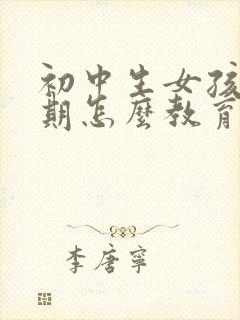 初中生女孩
期怎麼教育
李唐寧